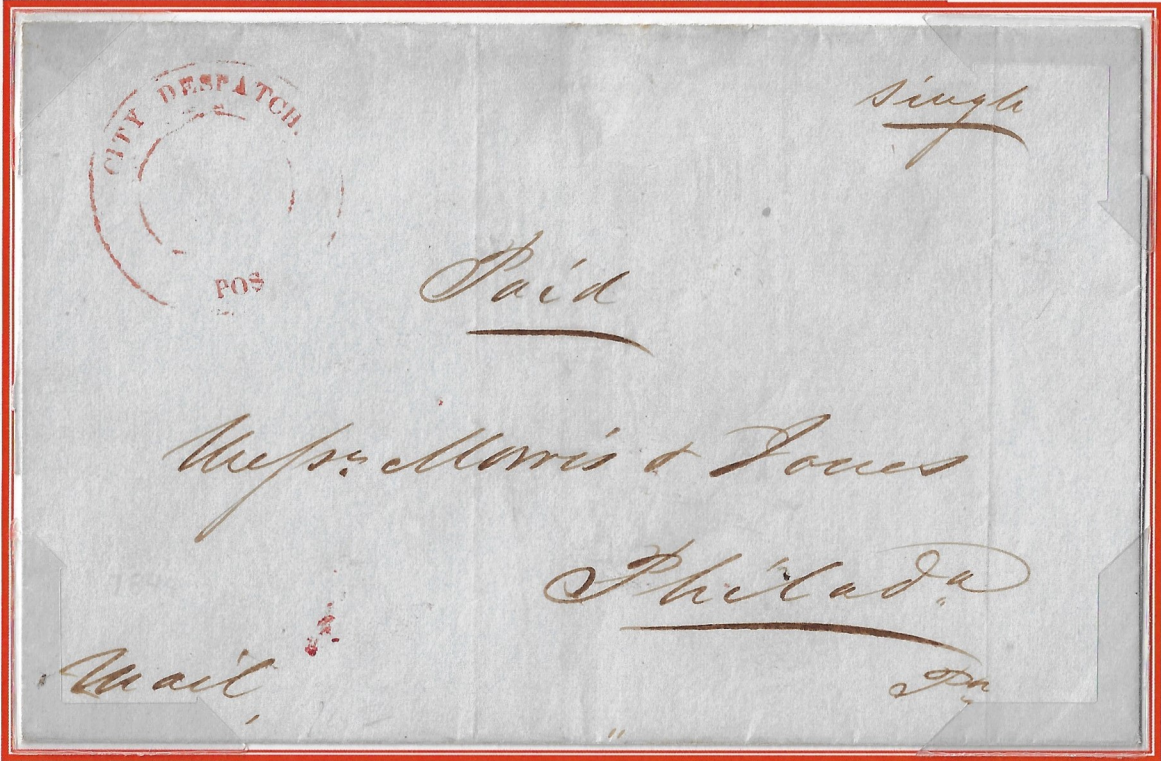 CITY DESPATCH.
POS
single
Paid
Messrs. Morris & Jones
Philada
Mail
Pa